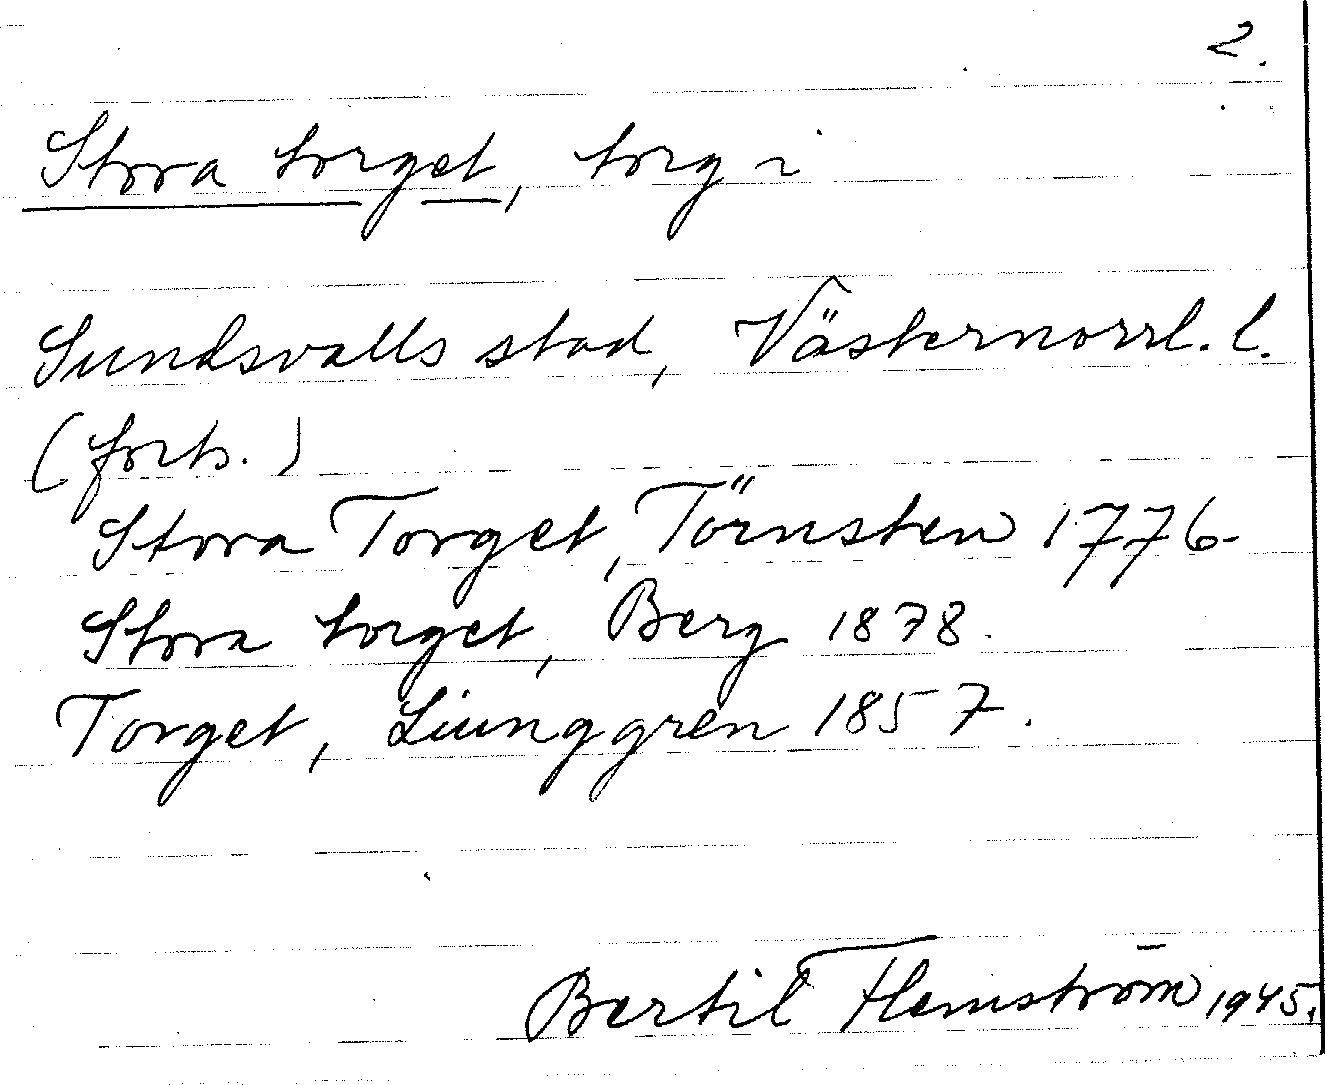 2.
Stora torget, torg i
Sundsvalls stad, Västernorrl. l.
(forts.)
Stora Torget, Törnsten 1776
Stora torget, Berg 1878.
Torget, Ljunggren 1857.
Bertil Flemström 1945.